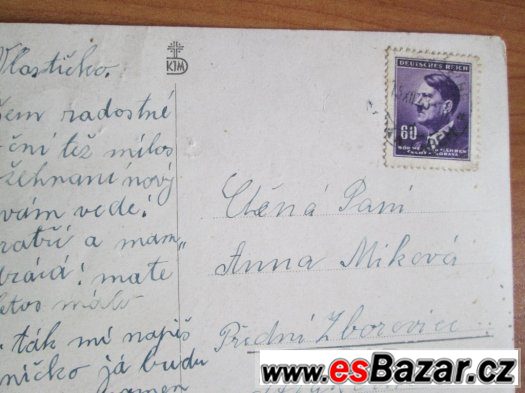 Vlastičko.
radostné
ční též milos
žehnaní nový
vám vede!
a mám
mate
letos málo
ták mi napiš
níčko já budu
KJM
DEUTSCHES REICH
60
BÖHMEN UND MÄHREN
ČECHY A MORAVA
Ctěná Paní
Anna Miková
Přední Zborovice
www.esBazar.cz